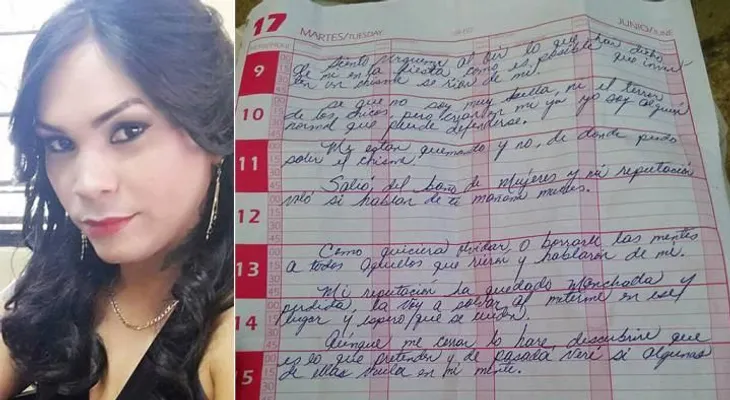 17 MARTES/TUESDAY JUNIO/JUNE
9 Siento verguenza al oir lo que han dicho
de mi en la fiesta como es posible que inven-
ten un chisme se rían de mi.
10 se que no soy muy bella, ni el terror
de los chicos, pero creanme ya yo soy alguien
normal que puede defenderse.
11 Me estan quemando y no, de donde pudo
salir el chisme.
12 Salió del baño de Mujeres y mi reputación
voló si hablar de ti mañana mueres.
13 Como quiciera olvidar o borrarle las mentes
a todos aquellos que rieron y hablaron de mí.
Mi reputación ha quedado manchada y
14 perdida, la voy a salvar al meterme en ese
lugar y espero que se
Aunque me lo hare, descubrire que
15 es lo que pretenden y de pasada veré si algunas
de ellas en mi mente.